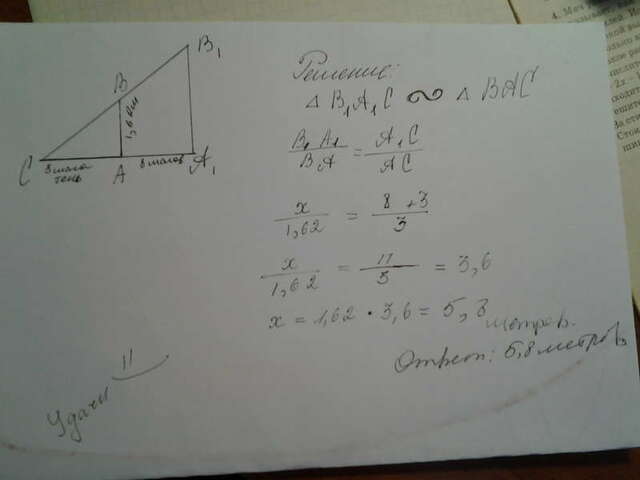 B₁
B
1,62м
C
3 шага
тень
A
8 шагов
A₁
Решение:
△ B₁A₁C ∾ △ BAC
B₁A₁/BA = A₁C/AC
x/1,62 = 8+3/3
x/1,62 = 11/3 = 3,6
x = 1,62 · 3,6 = 5,8 метров.
Ответ: 5,8 метров
Удачи !!
4. Мач